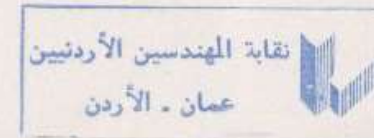 نقابة المهندسين الأردنيين
عمان . الأردن